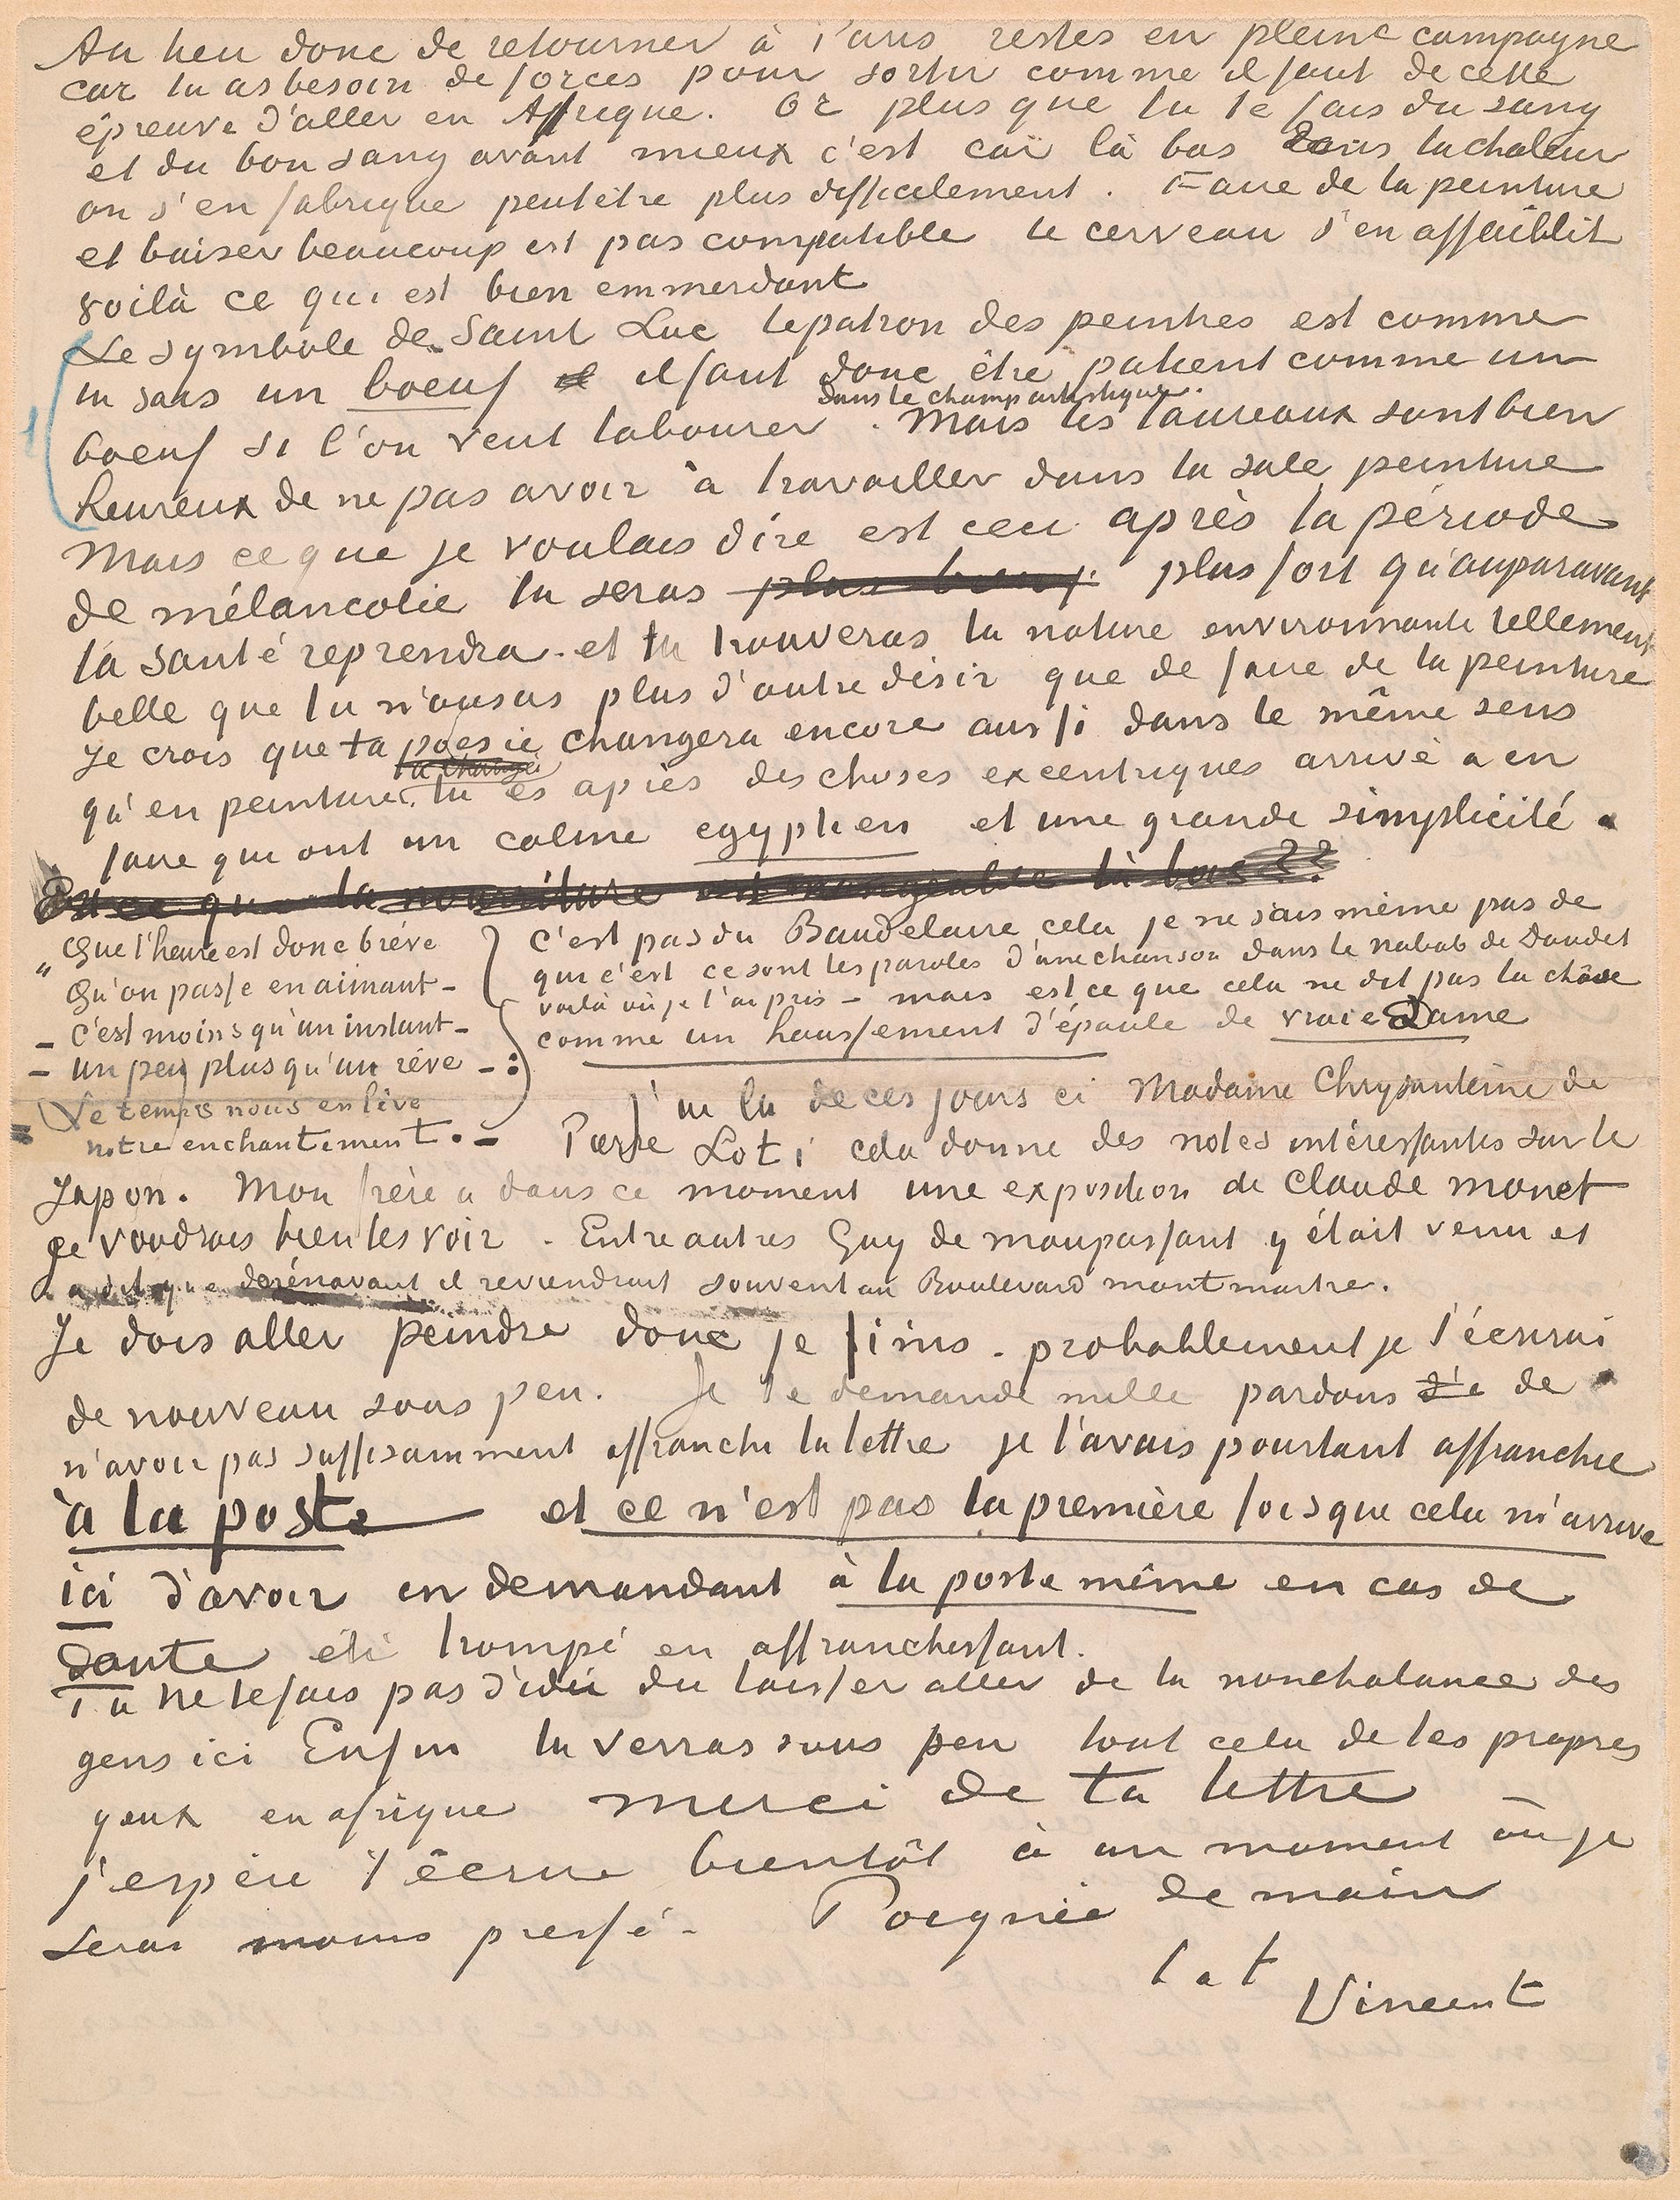 Au lieu donc de retourner à Paris restes en pleine campagne
car tu as besoin de forces pour sortir comme il faut de cette
épreuve d'aller en Afrique. Or plus que tu te fais du sang
et du bon sang avant mieux c'est car là bas dans la chaleur
on s'en fabrique peutêtre plus difficilement. Faire de la peinture
et baiser beaucoup est pas compatible le cerveau s'en affaiblit
voilà ce qui est bien emmerdant
Le symbole de Saint Luc le patron des peintres est comme
tu sais un boeuf il faut donc être patient comme un
dans le champ artistique.
boeuf si l'on veut labourer. Mais les taureaux sont bien
heureux de ne pas avoir à travailler dans la sale peinture
Mais ce que je voulais dire est ceci après la période
de mélancolie tu seras plus fort qu'auparavant
ta santé reprendra - et tu trouveras la nature environnante tellement
belle que tu n'auras plus d'autre désir que de faire de la peinture
Je crois que ta poesie changera encore aussi dans le même sens
a changé
qu'en peinture. tu es après des choses excentriques arrivé a en
faire qui ont un calme egyptien et une grande simplicité.
Est ce que la nourriture est mangeable là bas??
„ Que l'heure est donc brève
Qu'on passe en aimant -
- C'est moins qu'un instant -
- Un peu plus qu'un rêve - :
Le temps nous enlève
= notre enchantement. -
C'est pas du Baudelaire cela je ne sais même pas de
qui c'est ce sont les paroles d'une chanson dans le nabab de Daudet
voilà où je l'ai pris - mais est ce que cela ne dit pas la chose
comme un haussement d'épaule de vraie Dame
J'ai lu de ces jours ci Madame Chrysantème de
Pierre Loti cela donne des notes intéressantes sur le
Japon. Mon frère a dans ce moment une exposition de Claude Monet
je voudrais bien les voir. Entre autres Guy de Maupassant y était venu et
a dit que dorénavant il reviendrait souvent au Boulevard Montmartre.
Je dois aller peindre donc je finis - probablement je t'écrirai
de nouveau sous peu. Je te demande mille pardons de
n'avoir pas suffisamment affranchi la lettre je l'avais pourtant affranchie
à la poste et ce n'est pas la première fois que cela m'arrive
ici d'avoir en demandant à la poste même en cas de
doute été trompé en affranchissant.
Tu ne te fais pas d'idée du laisser aller de la nonchalance des
gens ici Enfin tu verras sous peu tout cela de tes propres
yeux en afrique merci de ta lettre -
j'espère t'écrire bientôt à un moment où je
serai moins pressé - Poignée de main
t. à t.
Vincent